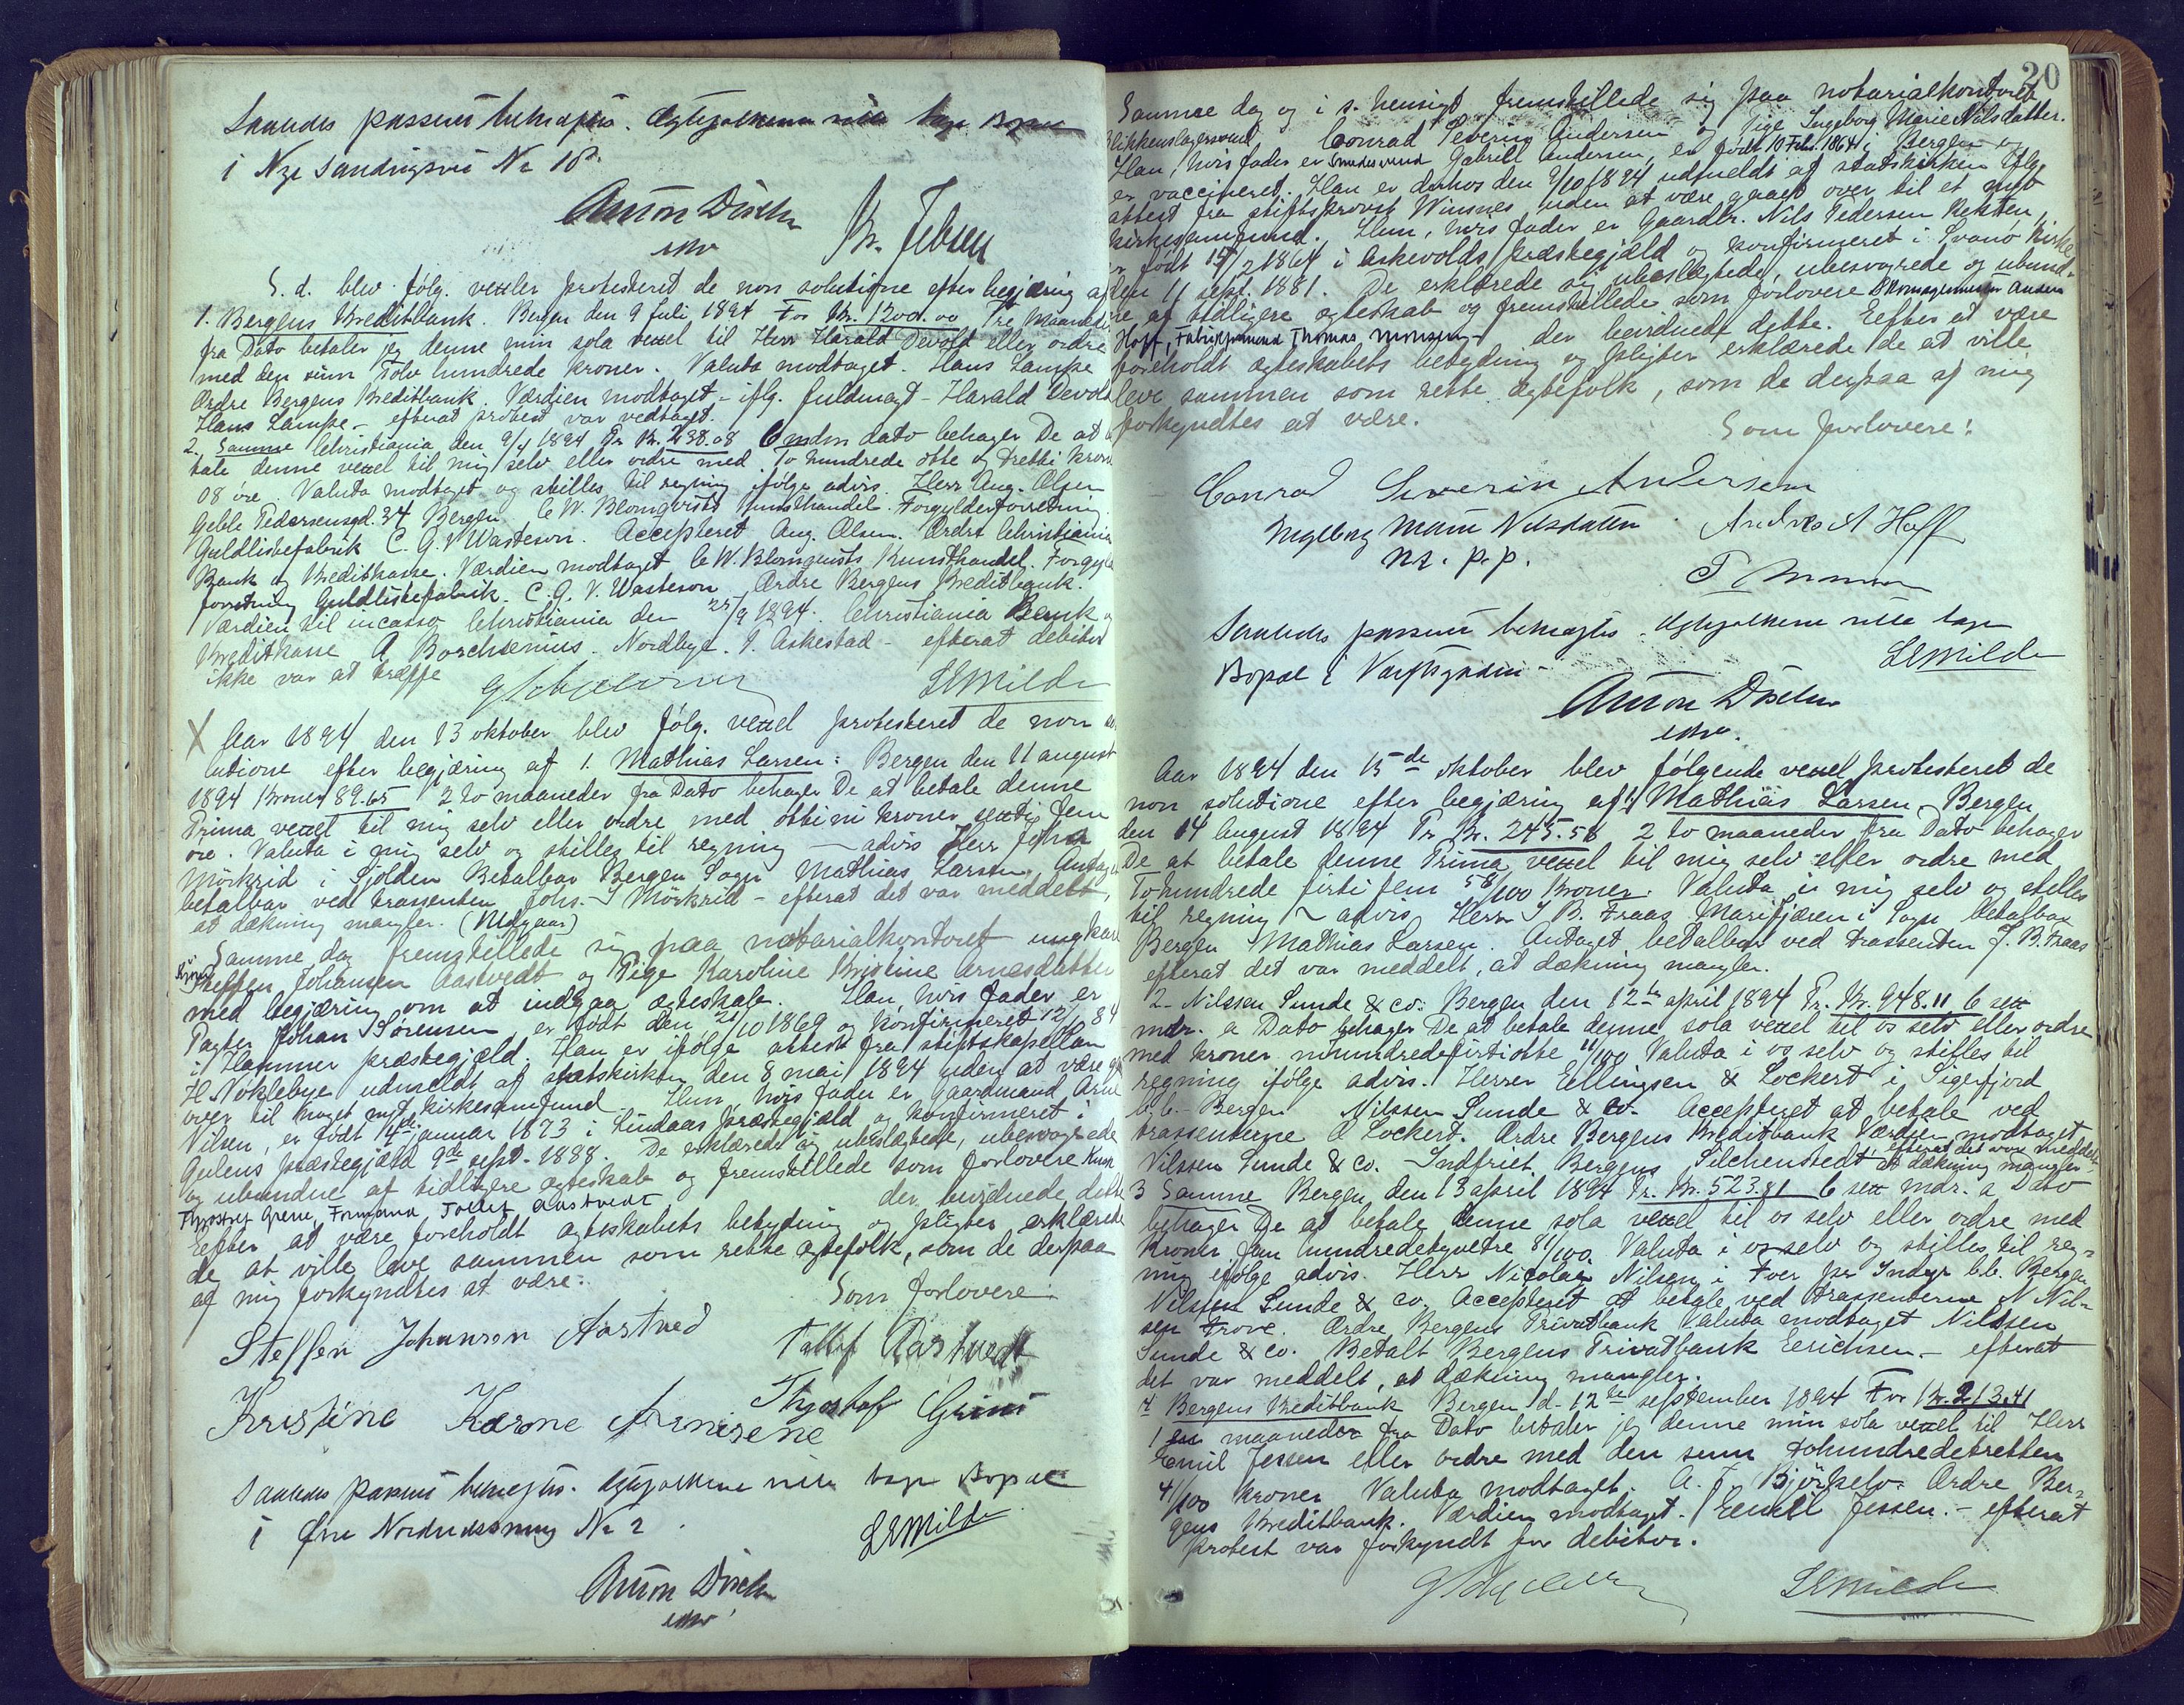 Saaledes passeret bekræftes. Ægtefolkene ville tage Bopæl
i Nye Sandvigsvei No 18.
Anton Disch
Kr. Jebsen
S. d. blev følg. vexler protesteret de non solutione efter begjæring af
1. Bergens Kreditbank. Bergen den 9 Juli 1894 For Kr. 1200.00 Tre Maaneder
fra Dato betaler jeg denne min sola vexel til Herr Harald Devold eller ordre
med den sum Tolv hundrede kroner. Valuta modtaget. Hans Lampe
Ordre Bergens Kreditbank. Værdien modtaget - iflg. fuldmagt - Harald Devold
Hans Lampe - efterat protest var vedtaget.
2. Samme Christiania den 9/4 1894 Pr Kr. 238.08 6 mdr dato behager De at be
tale denne vexel til mig selv eller ordre med To hundrede otte og tretti kron
08 öre. Valuta modtaget og stilles til regning ifølge advis. Herr Aug. Olsen
Geble Pedersensgd. 34 Bergen. C. W. Blomqvists Kunsthandel. Forgylderforretning.
Guldlistefabrik C. G. V. Wasteson. Accepteret Aug. Olsen. Ordre Christiania
Bank og Kreditkasse. Værdien modtaget C. W. Blomqvists Kunsthandel. Forgylder
forretning Guldlistefabrik. C. G. V. Wasteson. Ordre Bergens Kreditbank.
Værdien til incasso Christiania den 25/9 1894. Christiania Bank og
Kreditkasse A Borchsenius. Nordbye. P. Askestad - efterat debitor
ikke var at træffe
LEMilde
X Aar 1894 den 13 oktober blev følg. vexel protesteret de non so
lutione efter begjæring af 1. Mathias Larsen: Bergen den 11 august
1894 Kroner 89.65 2 to maaneder fra Dato behager De at betale denne
Prima vexel til mig selv eller ordre med ottini kroner sexti fem
öre. Valuta i mig selv og stilles til regning ~ advis Herr Johs
Mörkrid i Sjolden Betalbar Bergen Sogn Mathias Larsen. Antaget
betalbar ved trassenten Johs. Mörkrid - efterat det var meddelt,
at dækning mangler. (Udgaar)
Samme dag fremstillede sig paa notarialkontoret ungkarl
Steffen Johansen Aastvedt og Pige Karoline Kristine Arnesdatter
med begjæring om at indgaa ægteskab. Han, hvis fader er
Pagter Johan Sørensen, er født den 21/10 1869 og konfirmeret 12/10 84
i Hammer præstegjæld. Han er ifølge attest fra stiftskapellan
H. Nøklebye udmeldt af statskirken den 8 mai 1894 uden at være gaaet
over til noget nyt kirkesamfund. Hun, hvis fader er Gaardmand Arne
Nilsen, er født 4de januar 1873 i Lindaas præstegjæld og konfirmeret i
Gulens præstegjæld 9de sept. 1888. De erklærede sig ubeslægtede, ubesvogrede
og ubundne af tidligere ægteskab og fremstillede som forlovere
Formand Tollef Aastvedt der bevidnede dette
Eefter at være foreholdt ægteskabets betydning og pligter erklærede
de at ville leve sammen som rette ægtefolk, som de derpaa
af mig forkyndtes at være.
Som forlovere:
Steffen Johansen Aastved
Tollef Aastvedt
Kristine Karone Arnesene
Saaledes passeret bekræftes. Ægtefolkene ville tage Bopæl
i Øvre No 2.
LEMilde
Anton Disch
20
Samme dag og i s. hensigt fremstillede sig paa notarialkontoret
Blikkenslagersvend Conrad Severin Andersen og Pige Ingeborg Marie Nilsdatter.
Han, hvis fader er Smedesvend Gabriel Andersen, er født 10 Febr. 1864 i Bergen og
er vaccineret. Han er derhos den 9/10 1894 udmeldt af statskirken iflg.
attest fra stiftsprovst Winsnes uden at være gaaet over til et nyt
kirkesamfund. Hun, hvis fader er Gaardbr. Nils Pedersen
er født 15/2 1864 i Askevolds præstegjæld og konfirmeret i Svanö kirke
den 11 sept. 1881. De erklærede sig ubeslægtede, ubesvogrede og ubund-
ne af tidligere ægteskab og fremstillede som forlovere Skomagermester Anders
Hoff, Fabrikformand Thomas Monsen der bevidnede dette. Eefter at være
foreholdt ægteskabets betydning og pligter erklærede de at ville
leve sammen som rette ægtefolk, som de derpaa af mig
forkyndtes at være.
Som forlovere:
Conrad Severin Andersen
Ingeborg Marie Nilsdatter
m. p. p.
Andreas A Hoff
Saaledes passeret bekræftes. Ægtefolkene ville tage
Bopæl i
LEMilde
Anton Disch
Aar 1894 den 15de oktober blev følgende vexel protesteret de
non solutione efter begjæring af 1/ Mathias Larsen, Bergen
den 14 August 1894 Pr Kr. 245.58 2 to maaneder fra Dato behager
De at betale denne Prima vexel til mig selv eller ordre med
Tohundrede firti fem 58/100 Kroner. Valuta i mig selv og stilles
til regning ~ advis Herr J. B. Fraas Marifjæren i Sogn betalbar
Bergen Mathias Larsen. Antaget betalbar ved trassenten J. B. Fraas
efterat det var meddelt, at dækning mangler.
2. Nilssen Sunde & Co: Bergen den 12te april 1894 Pr. Kr. 948.11 6 sex
mdr. a Dato behager De at betale denne sola vexel til os selv eller ordre
med kroner nihundredefirtiotte 11/100 Valuta i os selv og stilles til
regning ifølge advis. Herrer Eellingsen & Lockert i Sigerfjord
b.b. Bergen Nilssen Sunde & Co. Accepteret at betale ved
trassenterne O Lockert. Ordre Bergens Kreditbank Værdien modtaget
Nilssen Sunde & Co. Indfriet Bergens Silchenstedt, efterat det var meddelt, at dækning mangler
3 Samme Bergen den 13 april 1894 Pr. Kr. 523.81 6 sex mdr. a Dato
behager De at betale denne sola vexel til os selv eller ordre med
Kroner fem hundredetyvetre 81/100 Valuta i os selv og stilles til reg-
ning ifølge advis. Herr Nicolai Nilsen i Foer pr Indyr b.b. Bergen
Nilssen Sunde & Co. Accepteret at betale ved trassenterne N Nil-
sen Ordre Bergens Privatbank Valuta modtaget Nilssen
Sunde & Co. Betalt Bergens Privatbank Eerichsen. - efterat
det var meddelt, at dækning mangler.
4 Bergens Kreditbank Bergen d. 12te september 1894 For Kr. 213.41
1 en maaneder fra Dato betaler jeg denne min sola vexel til Herr
Eemil Jessen eller ordre med den sum tohundredetretten
41/100 kroner Valuta modtaget. A. J. Björkelo. Ordre Ber-
gens Kreditbank. Værdien modtaget. Eemil Jessen. - efterat
protest var forkyndt for debitor.
LEMilde